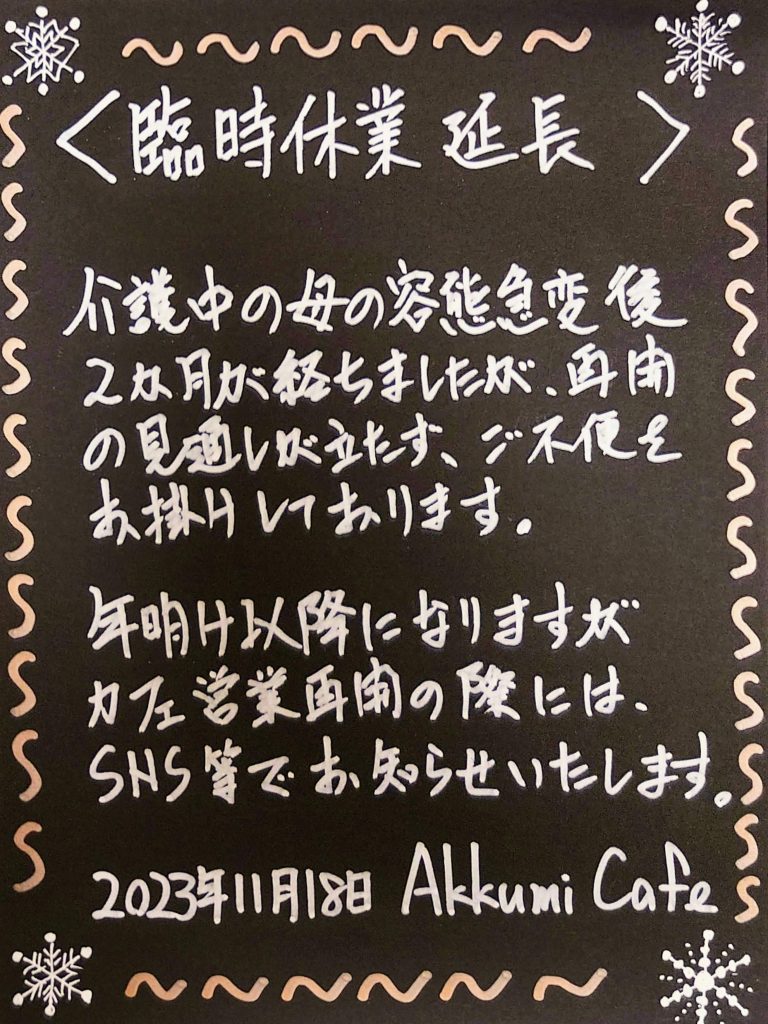 〈臨時休業 延長〉
介護中の母の容態急変後
2か月が経ちましたが、再開
の見通しが立たず、ご不便を
お掛けしております。
年明け以降になりますが
カフェ営業再開の際には、
SNS等でお知らせいたします。
2023年11月18日 Akkumi Cafe